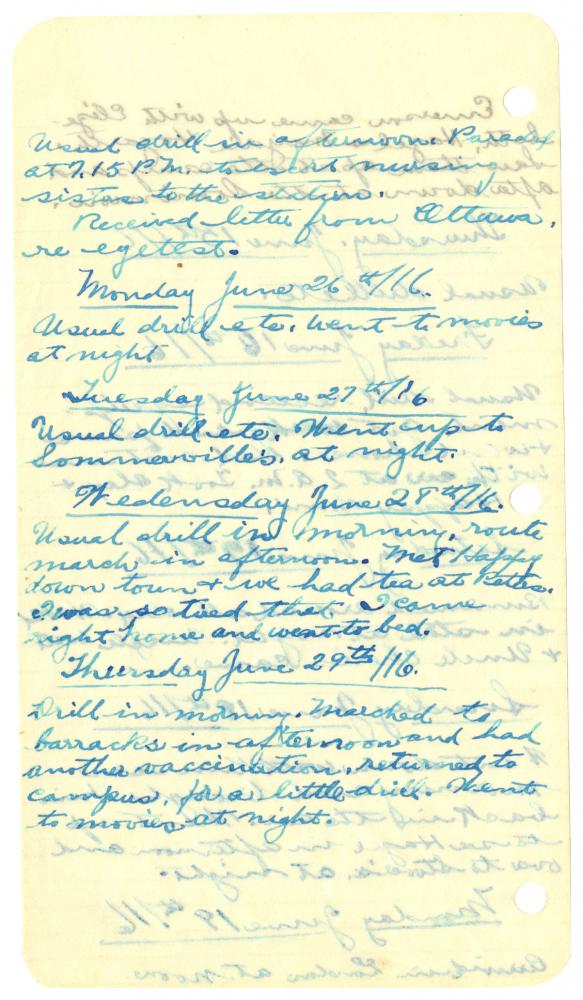 Usual drill in afternoon. Parade
at 7.15 P.M. to escort nursing
sisters to the station.
Received letter from Ottawa,
re
Monday June 26th/16.
Usual drill etc. Went to movies
at night
Tuesday June 27th/16
Usual drill etc. Went up to
Sommerville's, at night.
Wedensday June 28th/16.
Usual drill in morning, route
march in afternoon. Met Happy
down town & we had tea at
I was so tired that I came
right home and went to bed.
Thursday June 29th/16.
Drill in morning. Marched to
barracks in afternoon and had
another vaccination, returned to
campus, for a little drill. Went
to movies at night.